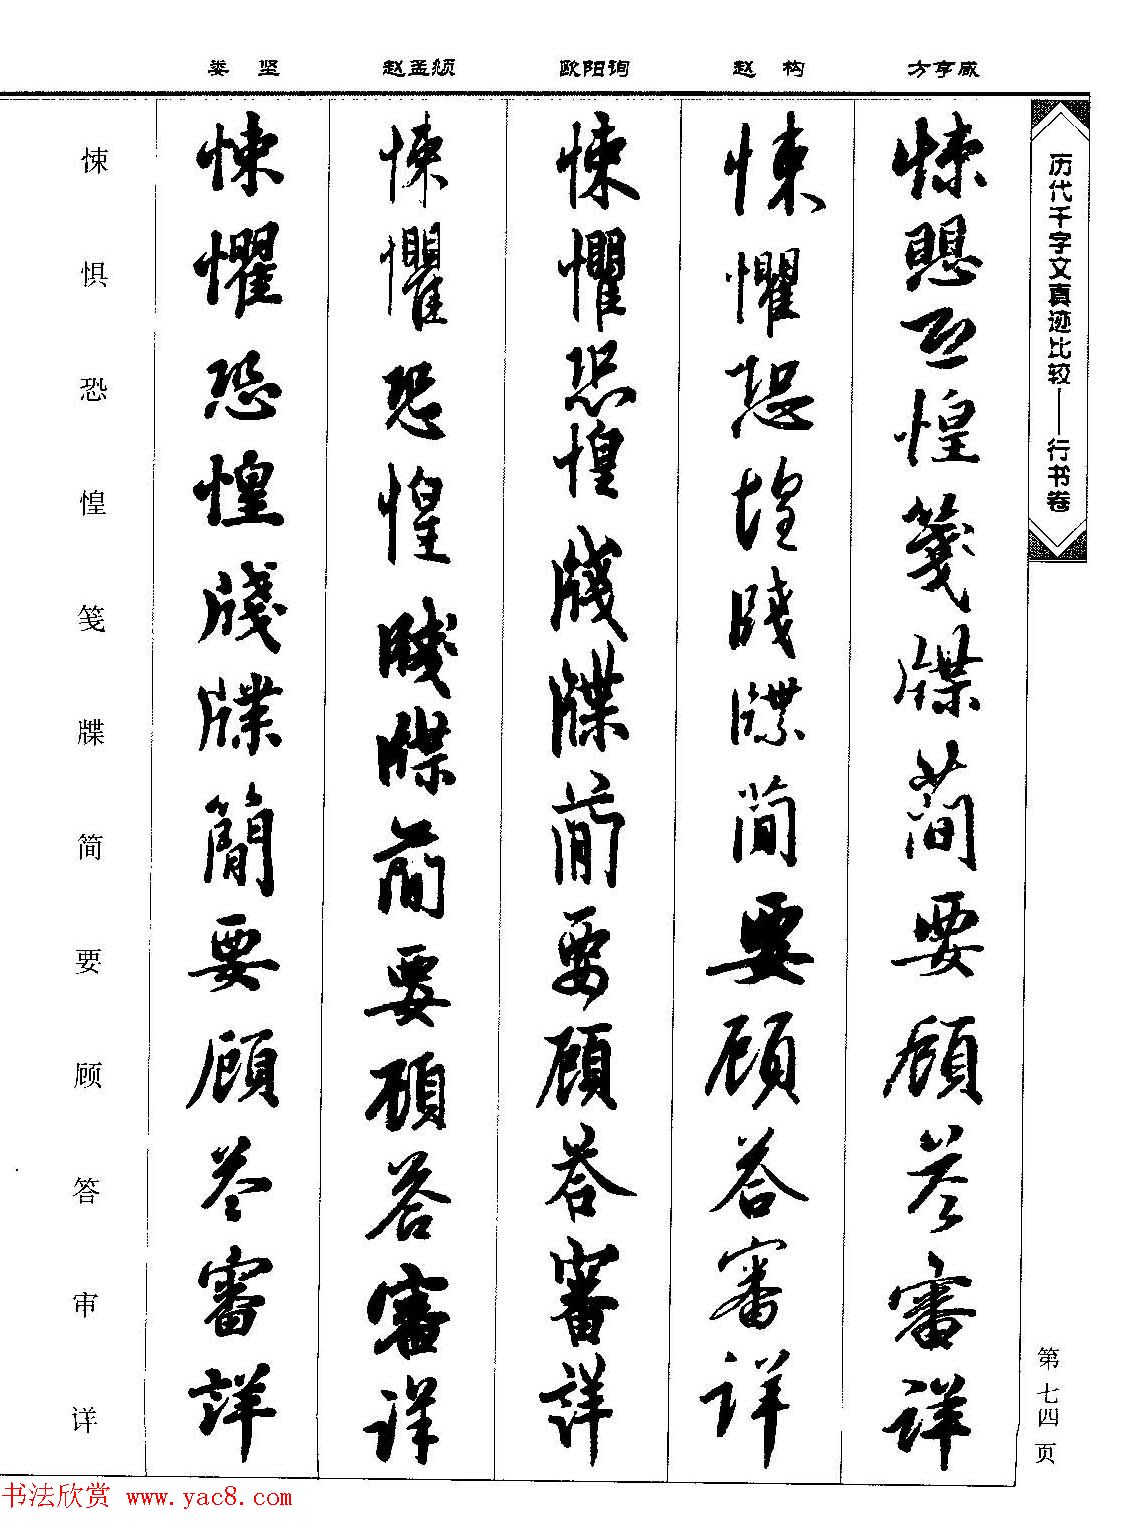 历代千字文真迹比较——行书卷
第七四页
方亨咸
悚愳恐惶箋牒簡要顧答審詳
赵构
悚懼恐惶牋牒簡要顧答審詳
欧阳询
悚懼恐惶牋牒簡要顧答審詳
赵孟頫
悚懼恐惶牋牒簡要顧答審詳
娄坚
悚懼恐惶牋牒簡要顧答審詳
悚惧恐惶笺牒简要顾答审详
书法欣赏 www.yac8.com